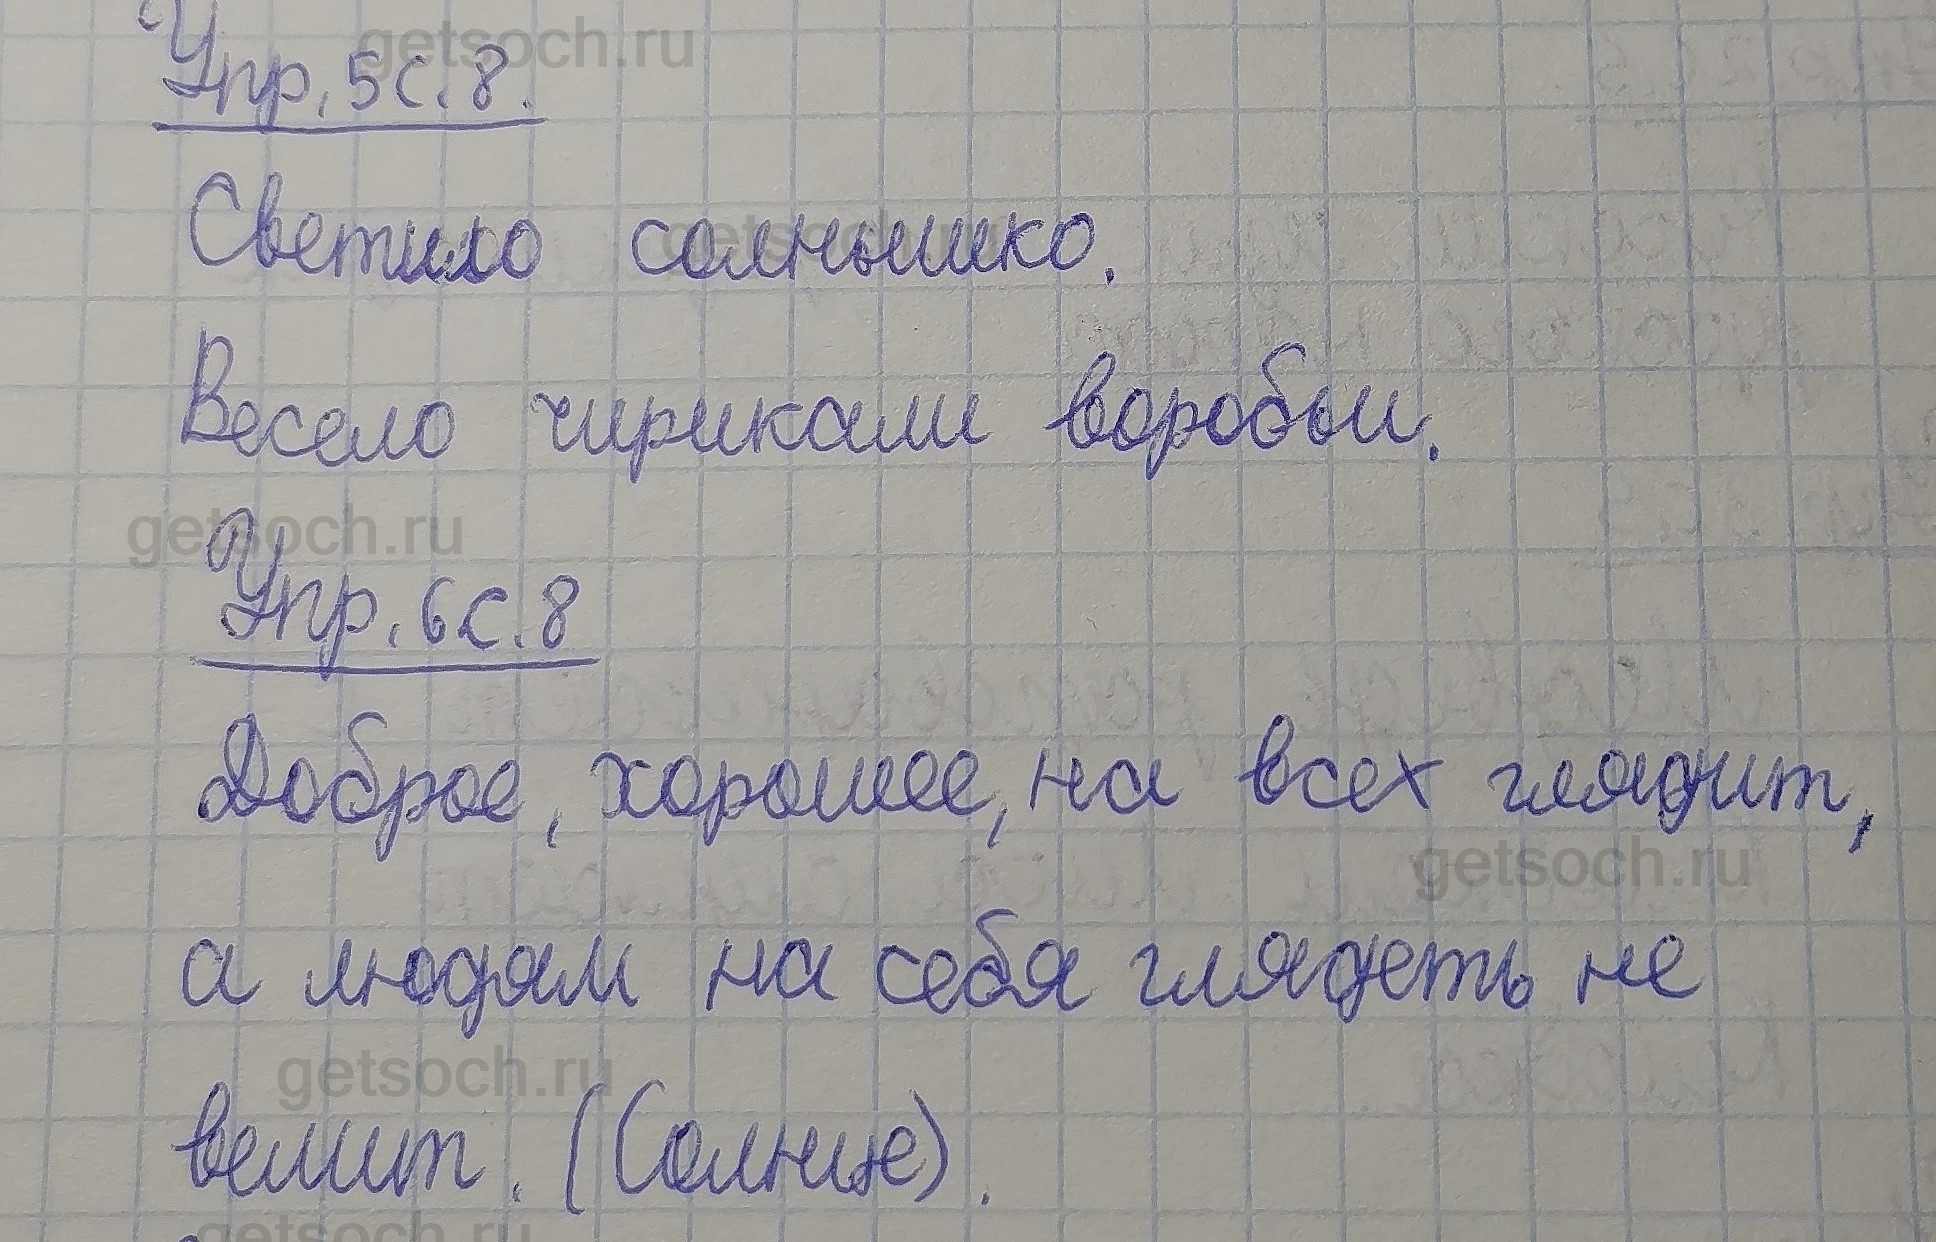 getsoch.ru
Упр. 5 с. 8.
Светило солнышко.
getsoch.ru
Весело чирикали воробьи.
getsoch.ru
Упр. 6 с. 8
Доброе, хорошее, на всех глядит,
getsoch.ru
а людям на себя глядеть не
getsoch.ru
велит. (Солнце).
getsoch.ru